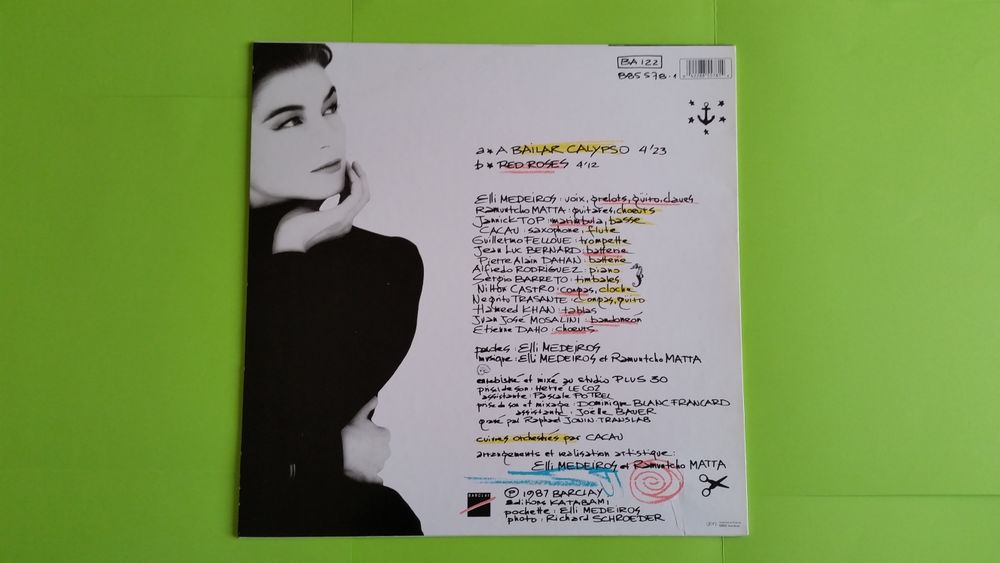 BA 122
885 578-1
a* A BAILAR CALYPSO 4'23
b* RED ROSES 4'12
Elli MEDEIROS : voix, grelots, guiro, claves
Ramuntcho MATTA : guitares, chœurs
Jannick TOP : marimbula, basse
CACAU : saxophone, flute
Guillermo FELLOVE : trompette
Jean Luc BERNARD : batterie
Pierre Alain DAHAN : batterie
Alfredo RODRIGUEZ : piano
Sergio BARRETO : timbales
Nilton CASTRO : congas, cloche
Negrito TRASANTE : congas, guiro
Hameed KHAN : tablas
Juan José MOSALINI : bandonéon
Etienne DAHO : chœurs
paroles : Elli MEDEIROS
musique : Elli MEDEIROS et Ramuntcho MATTA
enregistré et mixé au studio PLUS 30
prise de son : Hervé LE COZ
assistante : Pascale POTREL
prise de son et mixage : Dominique BLANC FRANCARD
assistante : Joëlle BAUER
gravé par Raphael JONIN. TRANSLAB
cuivres orchestrés par CACAU
arrangements et réalisation artistique :
Elli MEDEIROS et Ramuntcho MATTA
BARCLAY
℗ 1987 BARCLAY
editions KATABAMI
pochette : Elli MEDEIROS
photo : Richard SCHROEDER